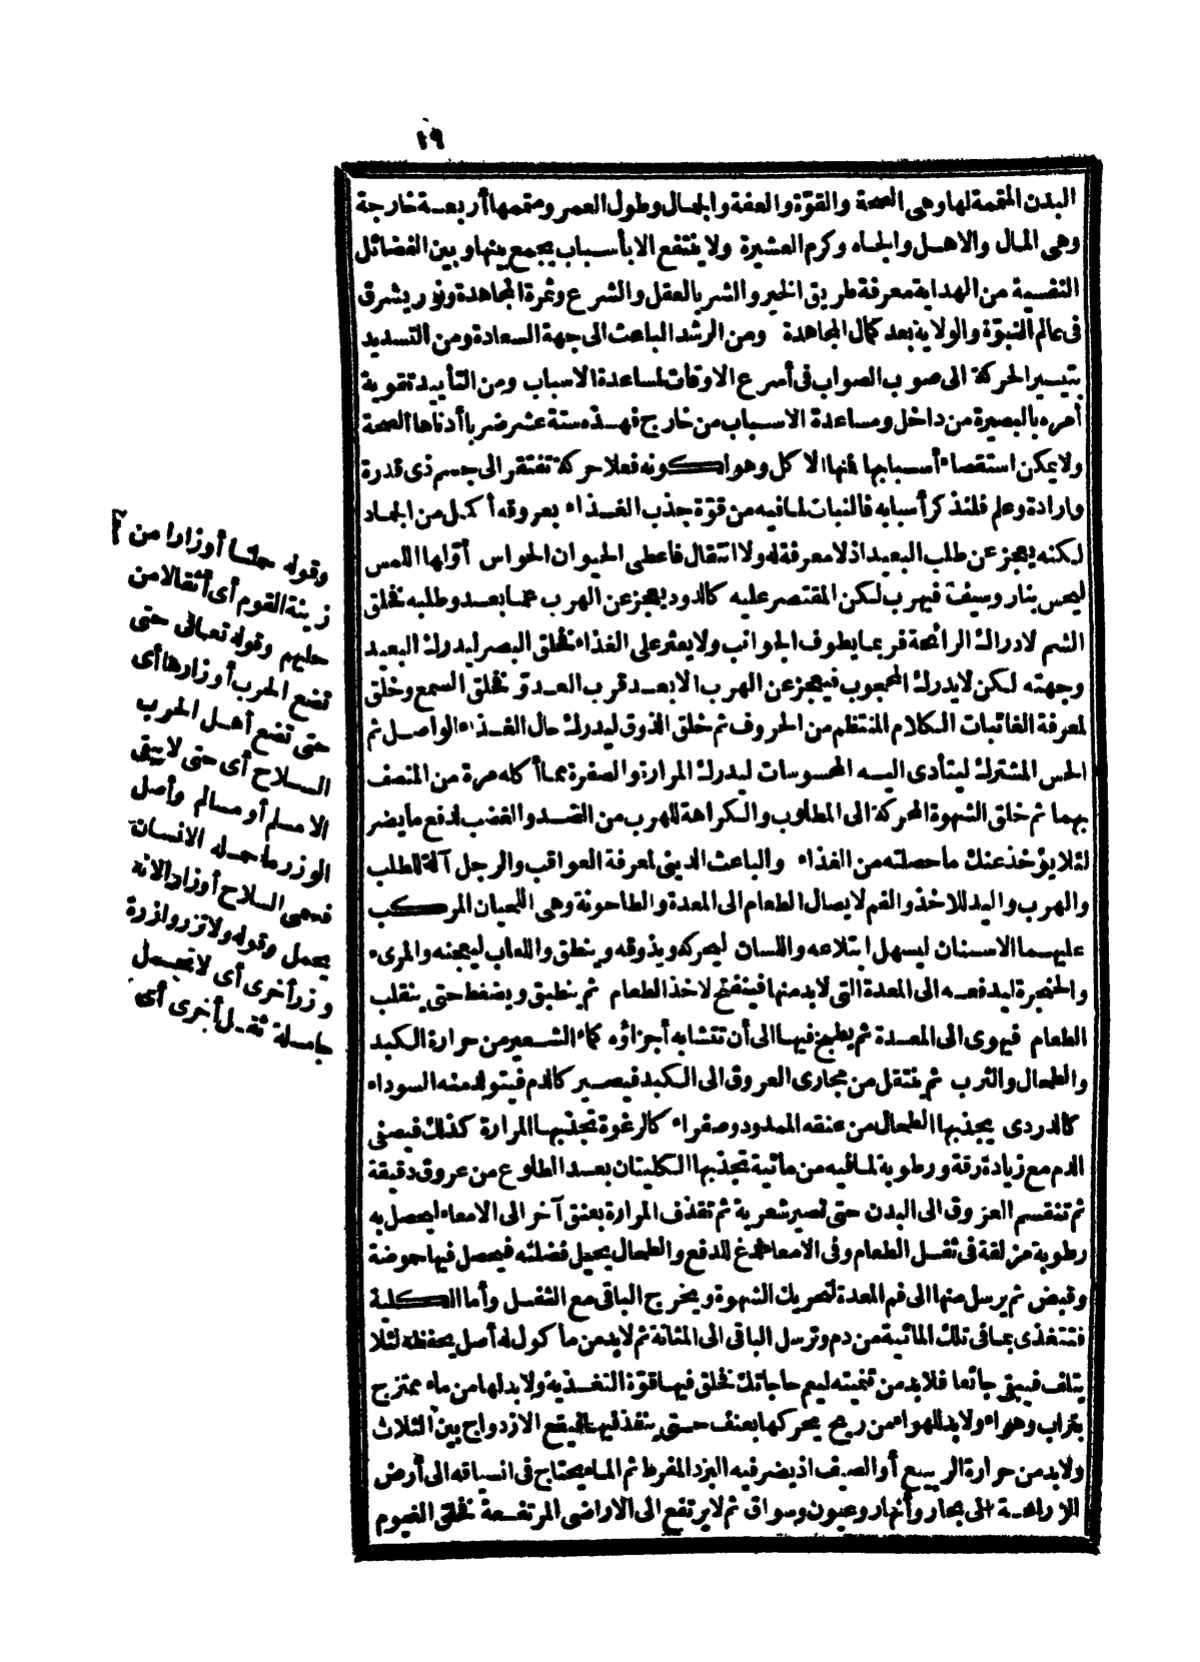 ١٩
البدن المتممة لها وهى الصحة والقوّة والعفة والجمال وطول العمر ومتممها أربعة خارجة
وهى المال والاهل والجاه وكرم العشيرة ولا ينتفع الا بأسباب يجمع بينها وبين الفضائل
النفسية من الهداية معرفة طريق الخير والشر بالعقل والشرع وثمرة المجاهدة ونور يشرق
فى عالم النبوّة والولاية بعد كمال المجاهدة ومن الرشد الباعث الى جهة السعادة ومن التسديد
بتيسير الحركة الى صوب الصواب فى أسرع الاوقات لمساعدة الاسباب ومن التأييد تقوية
أمره بالبصيرة من داخل ومساعدة الاسباب من خارج فهذه ستة عشر ضربا أدناها الصحة
ولا يمكن استقصاء أسبابها فنها الاكل وهو لكونه فعلا حركة تفتقر الى جسم ذى قدرة
وارادة وعلم فلنذكر أسبابه فالنبات لما فيه من قوّة جذب الغذاء بعروقه أكمل من الجماد
لكنه يعجز عن طلب البعيد اذ لا معرفة له ولا انتقال فاعطى الحيوان الحواس أوّلها اللمس
ليحس بنار وسيف فيهرب لكن المقتصر عليه كالدود يعجز عن الهرب عما بعد وطلبه فخلق
الشم لادراك الرائحة فربما يطوف الجوانب ولا يعثر على الغذاء فخلق البصر ليدرك البعيد
وجهته لكن لا يدرك المحجوب فيعجز عن الهرب الا بعد قرب العدوّ فخلق السمع وخلق
لمعرفة الغائبات الكلام المنتظم من الحروف ثم خلق الذوق ليدرك حال الغذاء الواصل ثم
الحس المشترك ليتأدى اليه المحسوسات ليدرك المرارة والصفرة مما أكله مرة من المتصف
بهما ثم خلق الشهوة المحركة الى المطلوب والكراهة للهرب من الضد والغضب لدفع ما يضر
لئلا يؤخذ عنك ما حصلته من الغذاء والباعث الدينى لمعرفة العواقب والرجل آلة للطلب
والهرب واليد للاخذ والفم لايصال الطعام الى المعدة والطاحونة وهى اللحيان المركب
عليهما الاسنان ليسهل ابتلاعه واللسان ليحركه ويذوقه وينطق واللعاب ليعجنه والمرىء
والحنجرة ليدفعه الى المعدة التى لا بد منها فينفتح لاخذ الطعام ثم ينطبق ويضغط حتى ينقلب
الطعام فيهوى الى المعدة ثم يطبخ فيها الى أن تتشابه أجزاؤه كماء الشعير من حرارة الكبد
والطحال والثرب ثم ينتقل من مجارى العروق الى الكبد فيصير كالدم فيتولد منه السوداء
كالدردى يجذبها الطحال من عنقه الممدود وصفراء كالرغوة تجذبها المرارة كذلك فيصفى
الدم مع زيادة رقة ورطوبة لما فيه من مائية تجذبها الكليتان بعد الطلوع من عروق دقيقة
ثم تنقسم العروق الى البدن حتى تصير شعرية ثم تقذف المرارة بعنق آخر الى الامعاء ليحصل به
رطوبة مزلقة فى ثفل الطعام وفى الامعاء لدغ للدفع والطحال يحيل فضلته فيحصل فيها حموضة
وقبض ثم يرسل منها الى فم المعدة لتحريك الشهوة ويخرج الباقى مع الثفل وأما الكلية
فتتغذى بما فى تلك المائية من دم وترسل الباقى الى المثانة ثم لا بد من مأكول له أصل يحفظه لئلا
يتلف فيبقى جائعا فلا بد من تنميته ليعم حاجاتك فخلق فيها قوّة التغذية ولا بد لها من ماء ممتزج
بتراب وهواء ولا بد للهواء من ريح يحركها بعنف حتى ينفذ فيها فيقع الازدواج بين الثلاث
ولا بد من حرارة الربيع أو الصيف اذ يضر فيه البرد المفرط ثم الماء يحتاج فى انسياقه الى أرض
الزراعة الى بحار وأنهار وعيون وسواق ثم لا يرتفع الى الاراضى المرتفعة فخلق الغيوم
وقوله حملنا أوزارا من
زينة القوم أى أثقالا من
حليهم وقوله تعالى حتى
تضع الحرب أوزارها أى
حتى تضع أهل الحرب
السلاح أى حتى لا يبقى
الا مسلم أو مسالم وأصل
الوزر ما حمله الانسان
فسمى السلاح أوزارا لانه
يحمل وقوله ولا تزر وازرة
وزر أخرى أى لا تحمل
حاملة ثقل أخرى أى